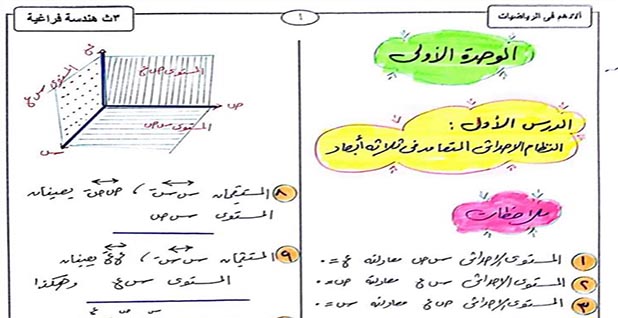 أدهم في الرياضيات
١
٣ث هندسة فراغية
الوحدة الأولى
الدرس الأول :
النظام الاحداثى المتعامد فى ثلاثة أبعاد
ملاحظات
١ المستوى الاحداثى س ص معادلته ع = ٠
٢ المستوى الاحداثى س ع معادلته ص = ٠
٣ المستوى الاحداثى ص ع معادلته س = ٠
ع
المستوى س ع
المستوى ص ع
ص
المستوى س ص
س
٨ المستقيمان س سَ ، ص صَ يعينان
المستوى س ص
٩ المستقيمان س سَ ، ع عَ يعينان
المستوى س ع وهكذا
س ص ع